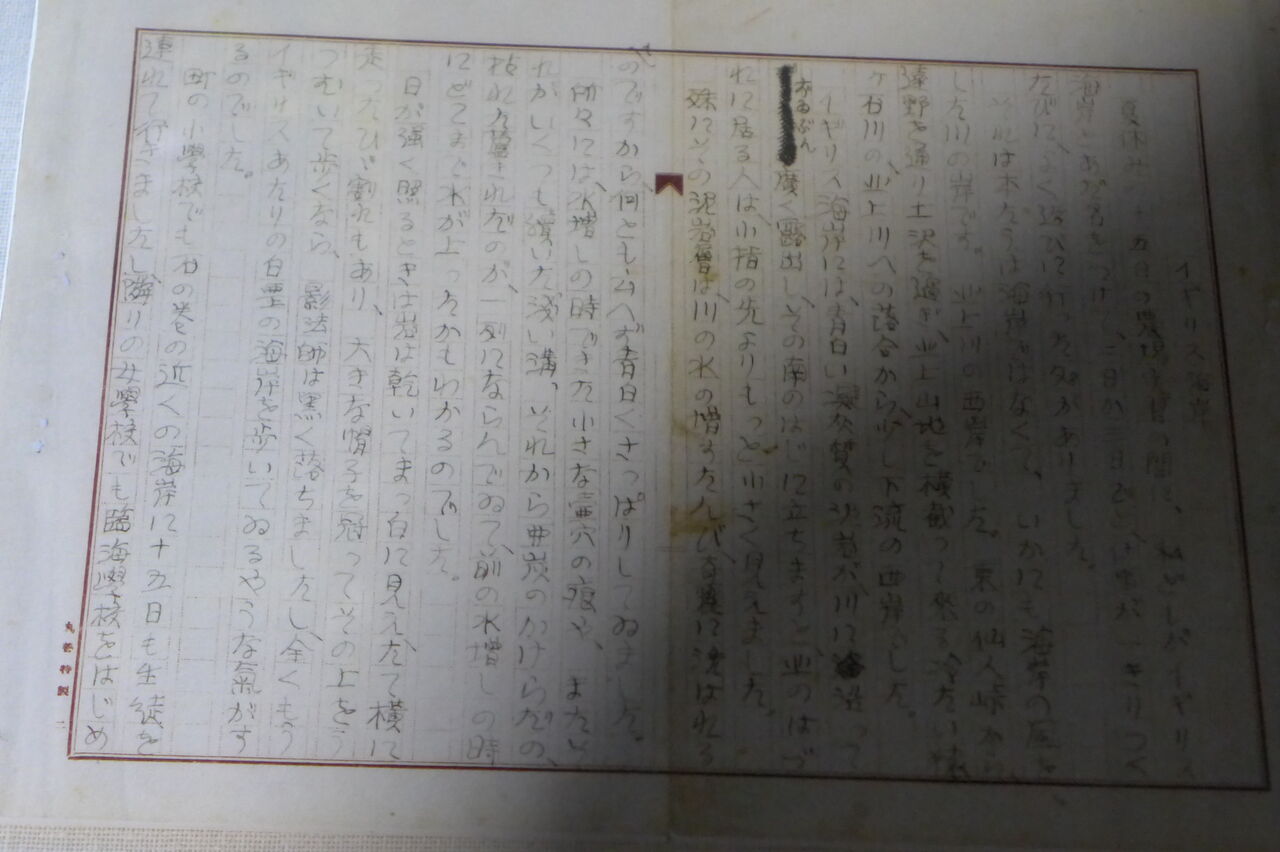 イギリス海岸
夏休みの十五日の農場実習の間に、私どもがイギリス
海岸とあだ名をつけて、二日か三日ごと、仕事が一きりつく
たびに、よく遊びに行った処がありました。
それは本たうは海岸ではなくて、いかにも海岸の風を
した川の岸です。北上川の西岸でした。東の仙人峠から、
遠野を通り土沢を過ぎ、北上山地を横截って来る冷たい猿
ヶ石川の、北上川への落合から、少し下流の西岸でした。
イギリス海岸には、青白い凝灰質の泥岩が、川に沿って
ずゐぶん
広く露出し、その南のはじに立ちますと、北のはづ
れに居る人は、小指の先よりもっと小さく見えました。
殊にその泥岩層は、川の水の増すたんび、奇麗に洗はれる
のですから、何とも云へず青白くさっぱりしてゐました。
所々には、水増しの時できた小さな壷穴の痕や、またそ
れがいくつも続いた浅い溝、それから亜炭のかけらだの、
枯れた蘆きれだのが、一列にならんでゐて、前の水増しの時
にどこまで水が上ったかもわかるのでした。
日が強く照るときは岩は乾いてまっ白に見え、たて横に
走ったひゞ割れもあり、大きな帽子を冠ってその上をう
つむいて歩くなら、影法師は黒く落ちましたし、全くもう
イギリスあたりの白堊の海岸を歩いてゐるやうな気がす
るのでした。
町の小学校でも石の巻の近くの海岸に十五日も生徒を
連れて行きましたし、隣りの女学校でも臨海学校をはじめ
丸善特製 二